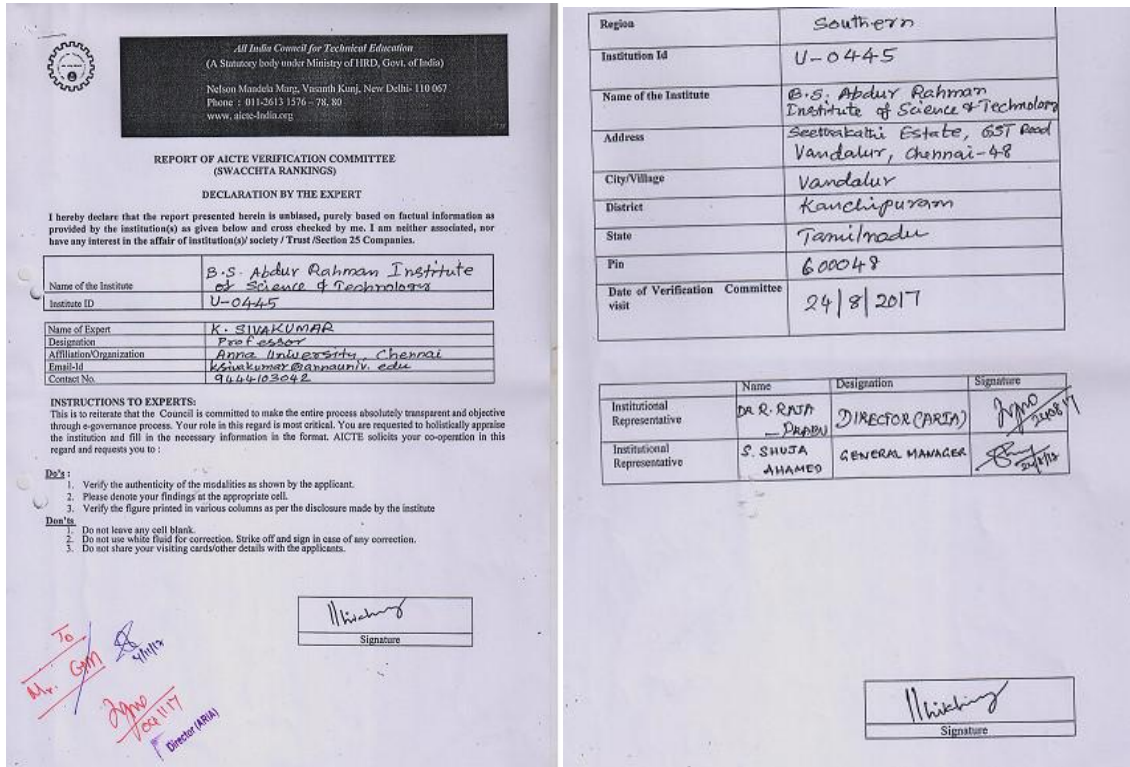 All India Council for Technical Education
(A Statutory body under Ministry of HRD, Govt. of India)
Nelson Mandela Marg, Vasanth Kunj, New Delhi- 110 067
Phone : 011-2613 1576 – 78, 80
www. aicte-India.org
REPORT OF AICTE VERIFICATION COMMITTEE
(SWACCHTA RANKINGS)
DECLARATION BY THE EXPERT
I hereby declare that the report presented herein is unbiased, purely based on factual information as
provided by the institution(s) as given below and cross checked by me. I am neither associated, nor
have any interest in the affair of institution(s)/ society / Trust /Section 25 Companies.
Name of the Institute B.S. Abdur Rahman Institute
of Science & Technology
Institute ID U-0445
Name of Expert K. SIVAKUMAR
Designation Professor
Affiliation/Organization Anna University, Chennai
Email-Id ksivakumar@annauniv.edu
Contact No. 9444103042
INSTRUCTIONS TO EXPERTS:
This is to reiterate that the Council is committed to make the entire process absolutely transparent and objective
through e-governance process. Your role in this regard is most critical. You are requested to holistically appraise
the institution and fill in the necessary information in the format. AICTE solicits your co-operation in this
regard and requests you to :
Do's :
1. Verify the authenticity of the modalities as shown by the applicant.
2. Please denote your findings at the appropriate cell.
3. Verify the figure printed in various columns as per the disclosure made by the institute
Don'ts
1. Do not leave any cell blank.
2. Do not use white fluid for correction. Strike off and sign in case of any correction.
3. Do not share your visiting cards/other details with the applicants.
Signature
To
Mr. GM
Director (ARIA)
Region Southern
Institution Id U-0445
Name of the Institute B.S. Abdur Rahman
Institute of Science & Technology
Address Seethakathi Estate, GST Road
Vandalur, Chennai-48
City/Village Vandalur
District Kanchipuram
State Tamilnadu
Pin 600048
Date of Verification Committee
visit 24/8/2017
Name Designation Signature
Institutional
Representative DR. R. RAJA
PRABU DIRECTOR (ARIA)
Institutional
Representative S. SHUJA
AHAMED GENERAL MANAGER
Signature